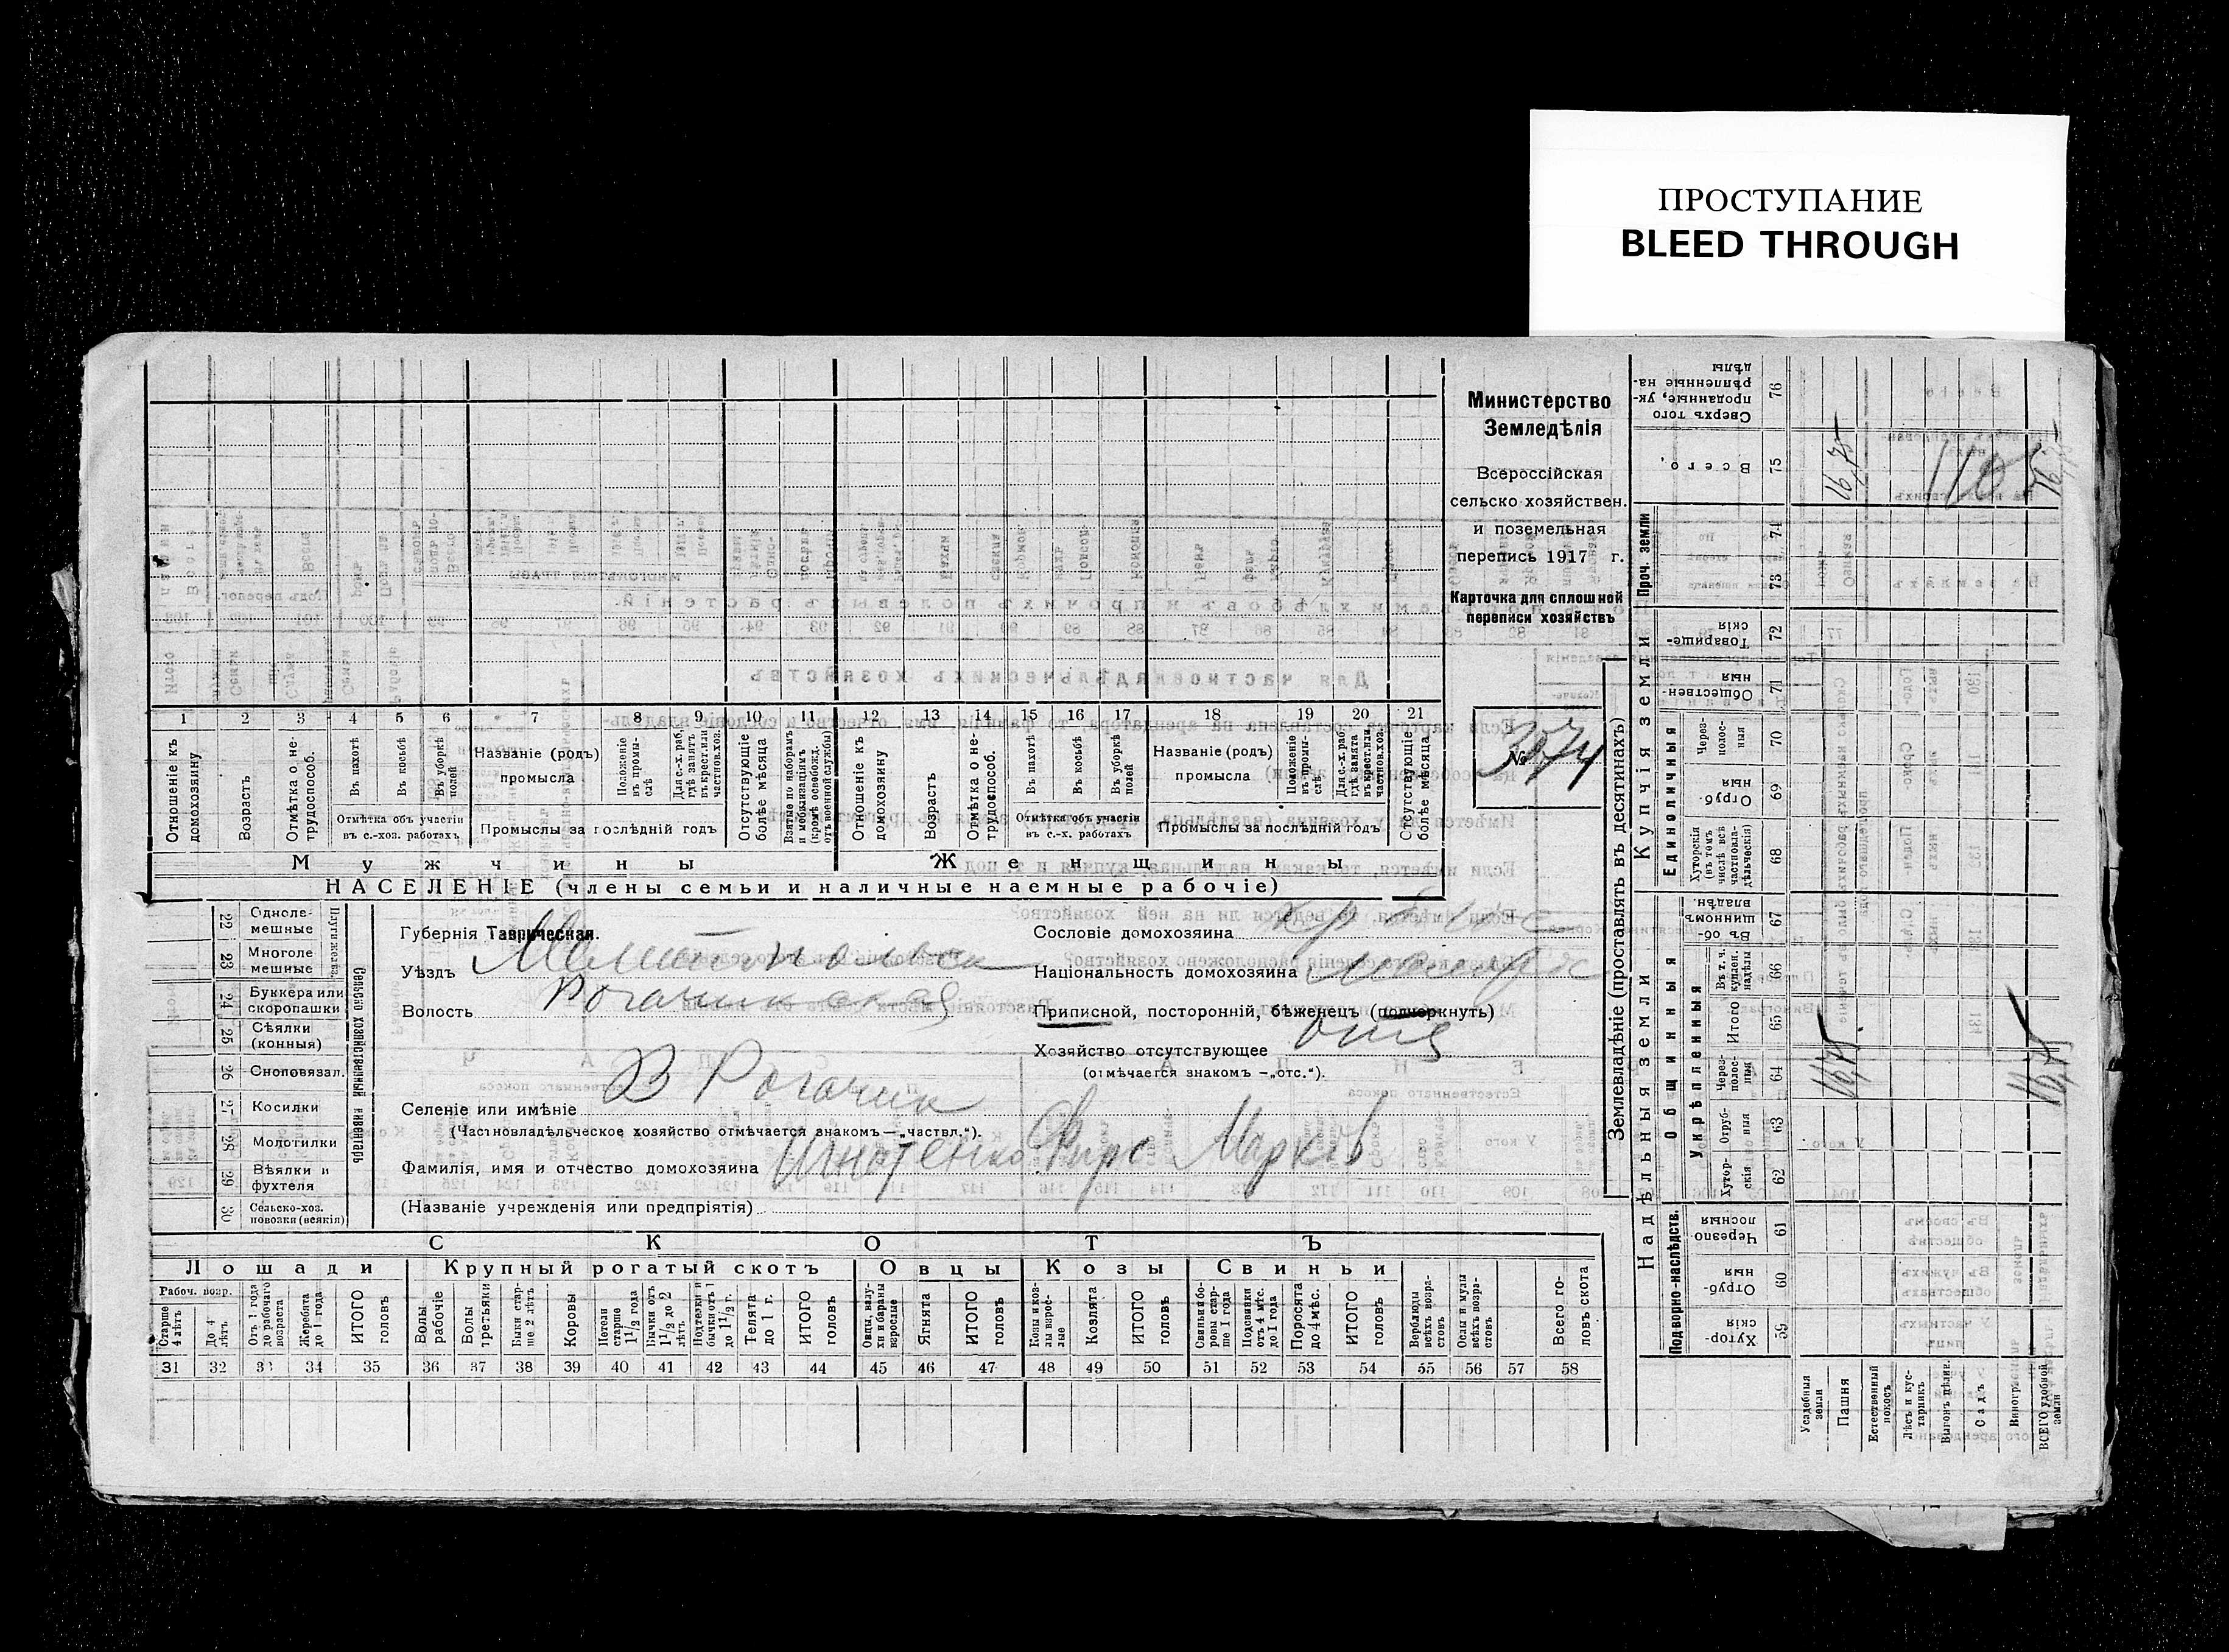 ПРОСТУПАНИЕ
BLEED THROUGH
Министерство
Земледѣлія
Всероссійская
сельско-хозяйствен.
и поземельная
перепись 1917 г.
Карточка для сплошной
переписи хозяйствъ
№ 3074
1 2 3 4 5 6 7 8 9 10 11 12 13 14 15 16 17 18 19 20 21
Отношеніе къ домохозяину
Возрастъ
Отмѣтка о нетрудоспособ.
Въ пахотѣ
Въ косьбѣ
Въ уборкѣ полей
Отмѣтка объ участіи
въ с.-хоз. работахъ
Названіе (родъ)
промысла
Положеніе въ промыслѣ
Для с.-х. раб. гдѣ занятъ въ крест. или частнов. хоз.
Промыслы за послѣдній годъ
Отсутствующіе болѣе мѣсяца
Взятые по наборамъ и мобилизаціямъ (кромѣ освобожд. отъ военной службы)
Отношеніе къ домохозяину
Возрастъ
Отмѣтка о нетрудоспособ.
Въ пахотѣ
Въ косьбѣ
Въ уборкѣ полей
Отмѣтка объ участіи
въ с.-х. работахъ
Названіе (родъ)
промысла
Положеніе въ промыслѣ
Для с.-х. раб. гдѣ занята въ крест. или частнов. хоз.
Промыслы за послѣдній годъ
Отсутствующіе болѣе мѣсяца
Мужчины
Женщины
НАСЕЛЕНІЕ (члены семьи и наличные наемные рабочіе)
Сельско хозяйственный инвентарь
22 Однолемешные
23 Многолемешные
24 Буккера или скоропашки
25 Сѣялки (конныя)
26 Сноповязал.
27 Косилки
28 Молотилки
29 Вѣялки и фухтеля
30 Сельско-хоз. повозки (всякія)
Губернія Таврическая.
Уѣздъ Мелитопольск
Волость Рогачикская
Селеніе или имѣніе В Рогачик
(Частновладѣльческое хозяйство отмѣчается знакомъ—„частвл.“).
Фамилія, имя и отчество домохозяина Игнатенко Фирс Марков
(Названіе учрежденія или предпріятія)
Сословіе домохозяина
Національность домохозяина
Приписной, посторонній, бѣженецъ (подчеркнуть)
Хозяйство отсутствующее
(отмѣчается знакомъ —„отс.“).
СКОТЪ
Лошади
Крупный рогатый скотъ
Овцы
Козы
Свиньи
Рабоч. возр.
Старше 4 лѣтъ
До 4 лѣтъ
Отъ 1 года до рабочаго возраста
Жеребята до 1 года
ИТОГО головъ
Волы рабочіе
Волы третьяки
Быки старше 2 лѣтъ
Коровы
Нетели старше 1 1/2 года
Бычки отъ 1 1/2 до 2 лѣтъ
Телята до 1 г.
ИТОГО головъ
Овцы, валухи и бараны взрослые
Ягнята
ИТОГО головъ
Козы и козлы взрослые
Козлята
ИТОГО головъ
Свиньи и боровы старше 1 года
Подсвинки отъ 4 мѣс. до 1 года
Поросята до 4 мѣс.
ИТОГО головъ
Верблюды всѣхъ возрастовъ
Ослы и мулы всѣхъ возрастовъ
Всего головъ скота
31 32 33 34 35 36 37 38 39 40 41 42 43 44 45 46 47 48 49 50 51 52 53 54 55 56 57 58
Землевладѣніе (проставлять въ десятинахъ)
Надѣльныя земли
Купчія земли
Проч. земли
Подворно-наслѣдств.
Общинныя
Укрѣпленныя
Единоличныя
Хуторскія 59
Отрубныя 60
Черезполосныя 61
Хуторскія 62
Отрубныя 63
Черезполосныя 64
Итого 65
Въ т. ч. куплен. надѣлы 66
Въ общинномъ владѣн. 67
Хуторскія (въ томъ числѣ всѣ частновладѣльческія) 68
Отрубныя 69
Черезполосныя 70
Общественныя 71
Товарищескія 72
73
74
Всего 75
Сверхъ того проданные, укрѣпленные надѣлы 76
Усадебныя земли
Пашня
Естественный покосъ
Лѣсъ и кустарникъ
Выгонъ цѣлин.
Садъ
Виногр
ВСЕГО удобной земли
16,75
16,75
16,75
16,75
110